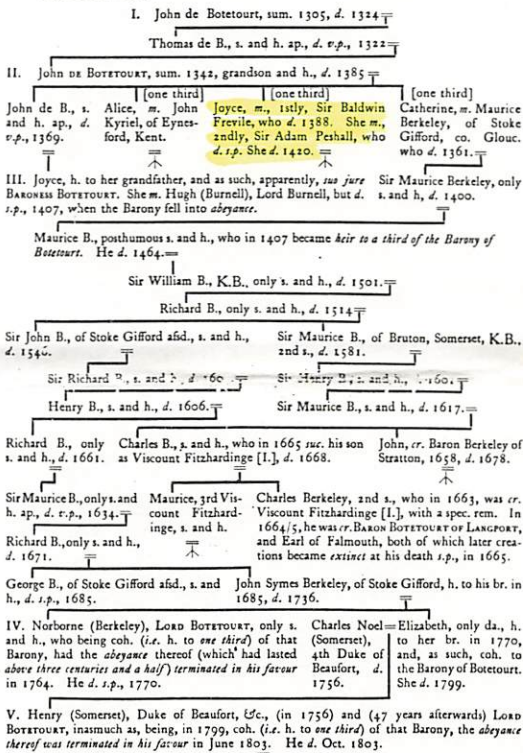 I. John de Botetourt, sum. 1305, d. 1324
Thomas de B., s. and h. ap., d. v.p., 1322
II. John de Botetourt, sum. 1342, grandson and h., d. 1385
[one third]
[one third]
[one third]
John de B., s.
and h. ap., d.
v.p., 1369.
Alice, m. John
Kyriel, of Eynes-
ford, Kent.
Joyce, m., 1stly, Sir Baldwin
Frevile, who d. 1388. She m.,
2ndly, Sir Adam Peshall, who
d. s.p. She d. 1420.
Catherine, m. Maurice
Berkeley, of Stoke
Gifford, co. Glouc.
who d. 1361.
III. Joyce, h. to her grandfather, and as such, apparently, suo jure
Baroness Botetourt. She m. Hugh (Burnell), Lord Burnell, but d.
s.p., 1407, when the Barony fell into abeyance.
Sir Maurice Berkeley, only
s. and h, d. 1400.
Maurice B., posthumous s. and h., who in 1407 became heir to a third of the Barony of
Botetourt. He d. 1464.
Sir William B., K.B., only s. and h., d. 1501.
Richard B., only s. and h., d. 1514
Sir John B., of Stoke Gifford afsd., s. and h.,
d. 1546.
Sir Maurice B., of Bruton, Somerset, K.B.,
2nd s., d. 1581.
Sir Richard B., s. and h., d. 160
Sir Henry B., s. and h., 1601.
Henry B., s. and h., d. 1606.
Sir Maurice B., s. and h., d. 1617.
Richard B., only
s. and h., d. 1661.
Charles B., s. and h., who in 1665 suc. his son
as Viscount Fitzhardinge [I.], d. 1668.
John, cr. Baron Berkeley of
Stratton, 1658, d. 1678.
Sir Maurice B., only s. and
h. ap., d. v.p., 1634.
Maurice, 3rd Vis-
count Fitzhard-
inge, s. and h.
Charles Berkeley, 2nd s., who in 1663, was cr.
Viscount Fitzhardinge [I.], with a spec. rem. In
1664/5, he was cr. Baron Botetourt of Langport,
and Earl of Falmouth, both of which later crea-
tions became extinct at his death s.p., in 1665.
Richard B., only s. and h.,
d. 1671.
George B., of Stoke Gifford afsd., s. and
h., d. s.p., 1685.
John Symes Berkeley, of Stoke Gifford, h. to his br. in
1685, d. 1736.
IV. Norborne (Berkeley), Lord Botetourt, only s.
and h., who being coh. (i.e. h. to one third) of that
Barony, had the abeyance thereof (which had lasted
above three centuries and a half) terminated in his favour
in 1764. He d. s.p., 1770.
Charles Noel
(Somerset),
4th Duke of
Beaufort, d.
1756.
Elizabeth, only da., h.
to her br. in 1770,
and, as such, coh. to
the Barony of Botetourt.
She d. 1799.
V. Henry (Somerset), Duke of Beaufort, &c., (in 1756) and (47 years afterwards) Lord
Botetourt, inasmuch as, being, in 1799, coh. (i.e. h. to one third) of that Barony, the abeyance
thereof was terminated in his favour in June 1803. He d. Oct. 1803.